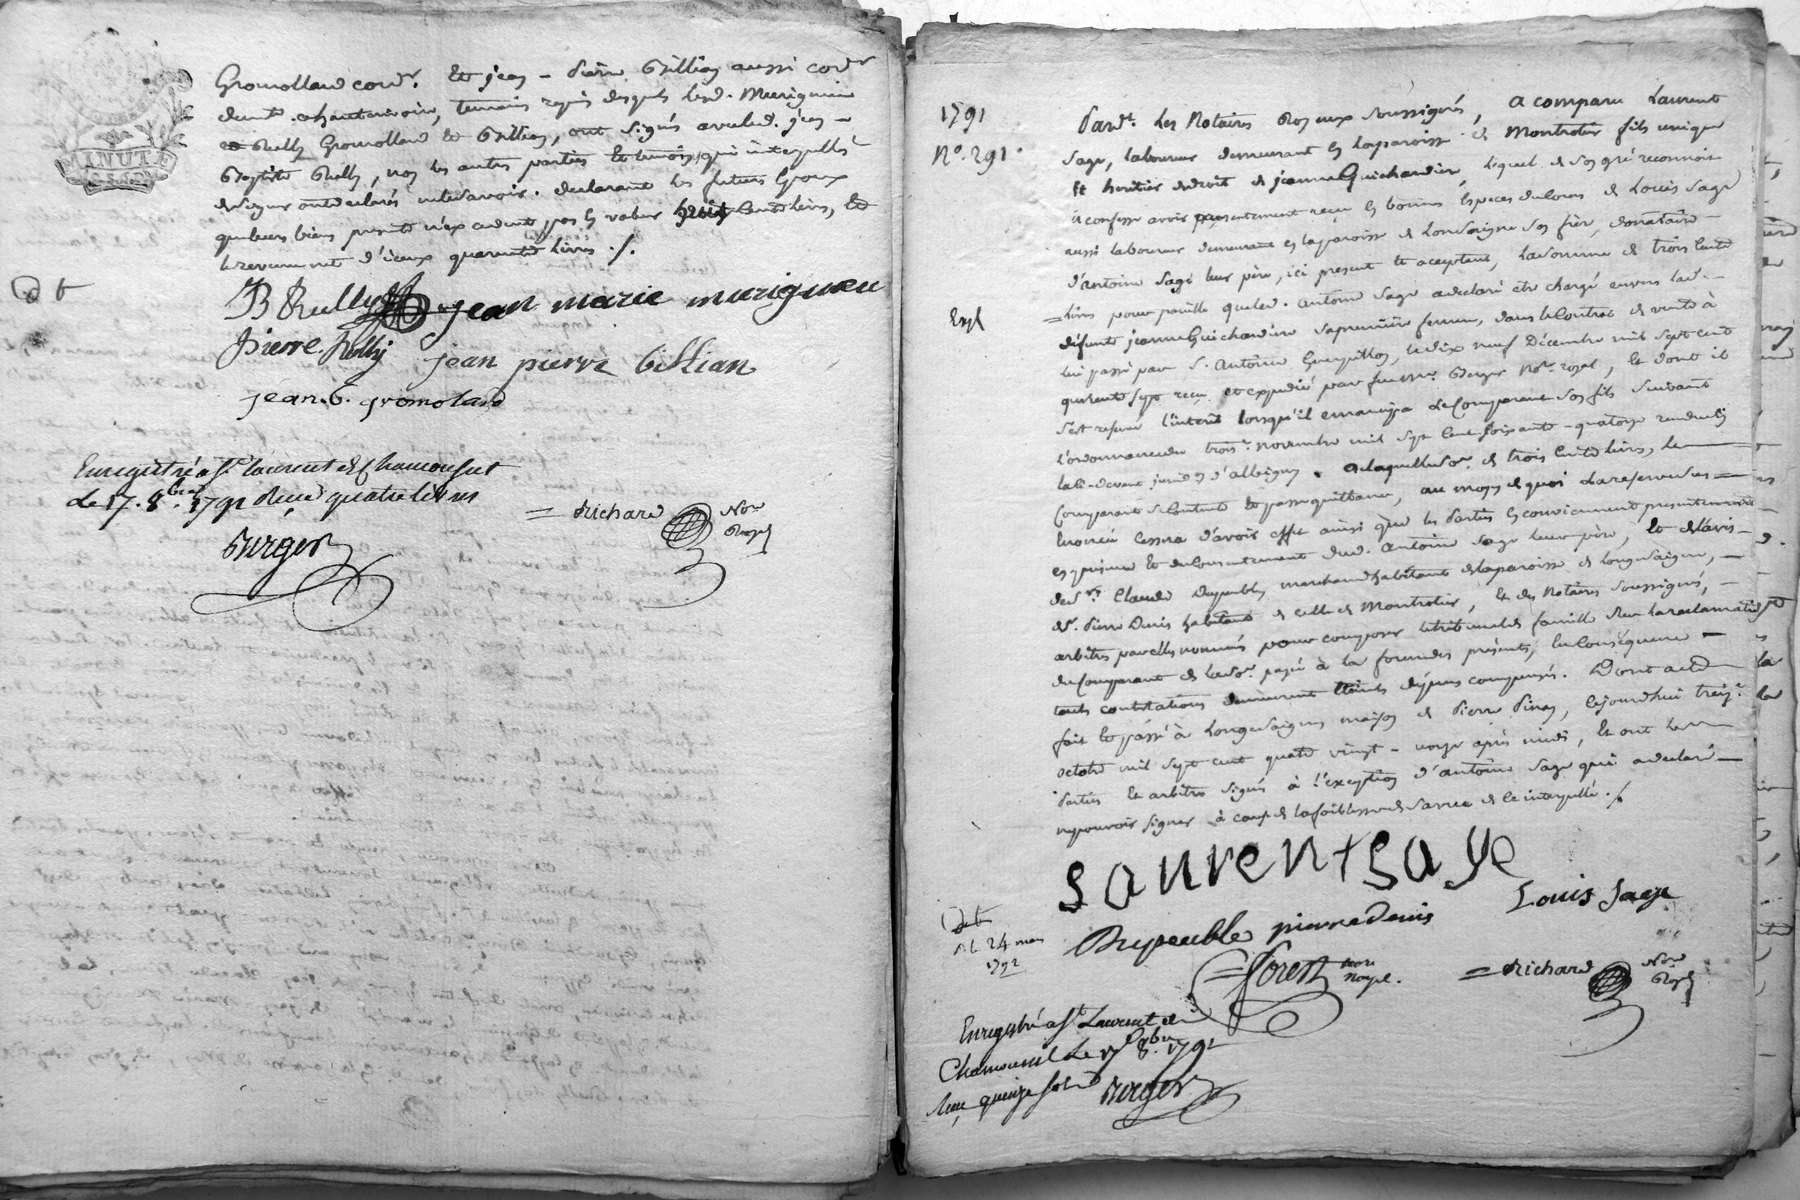 MINUTE
Gromolland cord.r Et jean - Pierre Billian aussi cord.r
temoins requis lesquels led. Murigneu
Rully Gromolland & Billian, ont signés avec led. jean -
Baptiste Rully, non les autres parties Et temoins, qui interpellés
de signer ont déclarés ne le savoir. declarant les futurs Epoux
que leurs biens presents n'excedent pas la valeur huit Cents livres, Et
le revenu net d'iceux quarante Livres ./.
JB Rully jean marie murigneu
Pierre Rully jean pierre billian
jean. B. gromoland
Enregistré a St. laurent de Chamousset
Le 17. 8bre 1791 Reçu quatre livres
Berger
= Richard Nore Royal
1791
No. 291.
Expd
Pardt. Les Notaires Royaux soussignés, a comparu Laurent
Sage, laboureur demeurant en la paroisse de Montrotier fils unique
Et heritier de droit de jeanne Guichardier, lequel de son gré reconnoit
& confesse avoir presentement reçu en bonnes Especes du Cours de Louis Sage
aussi laboureur demeurant en la paroisse de Longesaigne son frère, donataire -
d'antoine Sage leur père, ici present Et aceptant, la somme de trois Cents
= Livres pour pareille que led. antoine Sage a declaré etre chargé envers lad. -
défunte jeanne Guichardier sa premiere femme, dans le Contrat de vente à
lui passé par S. Antoine Guerpillon, le dix neuf Décembre mil sept cent
quarente sept reçu et expedié par feu me. Berger Nore. royal, Et dont il
s'est reservé l'interet lorsqu'il emancipa le Comparant son fils suivant
l'ordonnance du trois. novembre mil sept Cent soixante - quatorze rendue en
la ci-devant juridon d'albigny. de laquelle so.e de trois Cents livres, le
Comparant se Contente Et passe quittance, au moyen de quoi la reserve des
interets cessera d'avoir effet ainsi que les Parties en conviennent presentement
en presence Et du Consentement dud. antoine Sage leur père, Et de l'avis -
de Sr. Claude Dupeuble, marchand habitant de la paroisse de Longesaigne, -
& Sr. Pierre Denis habitant de celle de Montrotier, Et des Notaires Soussignés, -
arbitres par elles nommés pour composer le tribunal de famille sur la reclamation
du Comparant de lad. so.e payée à la forme des présents, En Conséquence -
touts contestations demeurent Eteints depens compensés. Dont acte
fait Et passé à Longesaigne maison de Pierre Pinay, Cejourd'hui treize
octobre mil sept cent quatre vingt - onze après midi, Et ont les
Parties Et arbitres signés à l'exception d'antoine Sage qui a declaré -
ne pouvoir signer à cause de la foiblesse de sa vue de ce interpellé ./.
Laurent Sage
Louis Sage
Dupeuble pierre Denis
24 mars
1792
Forest Nore Royal.
= Richard Nore Royal
Enregistré a St. Laurent de
Chamousset Le 17 8bre 1791
Reçu quinze sols
Berger